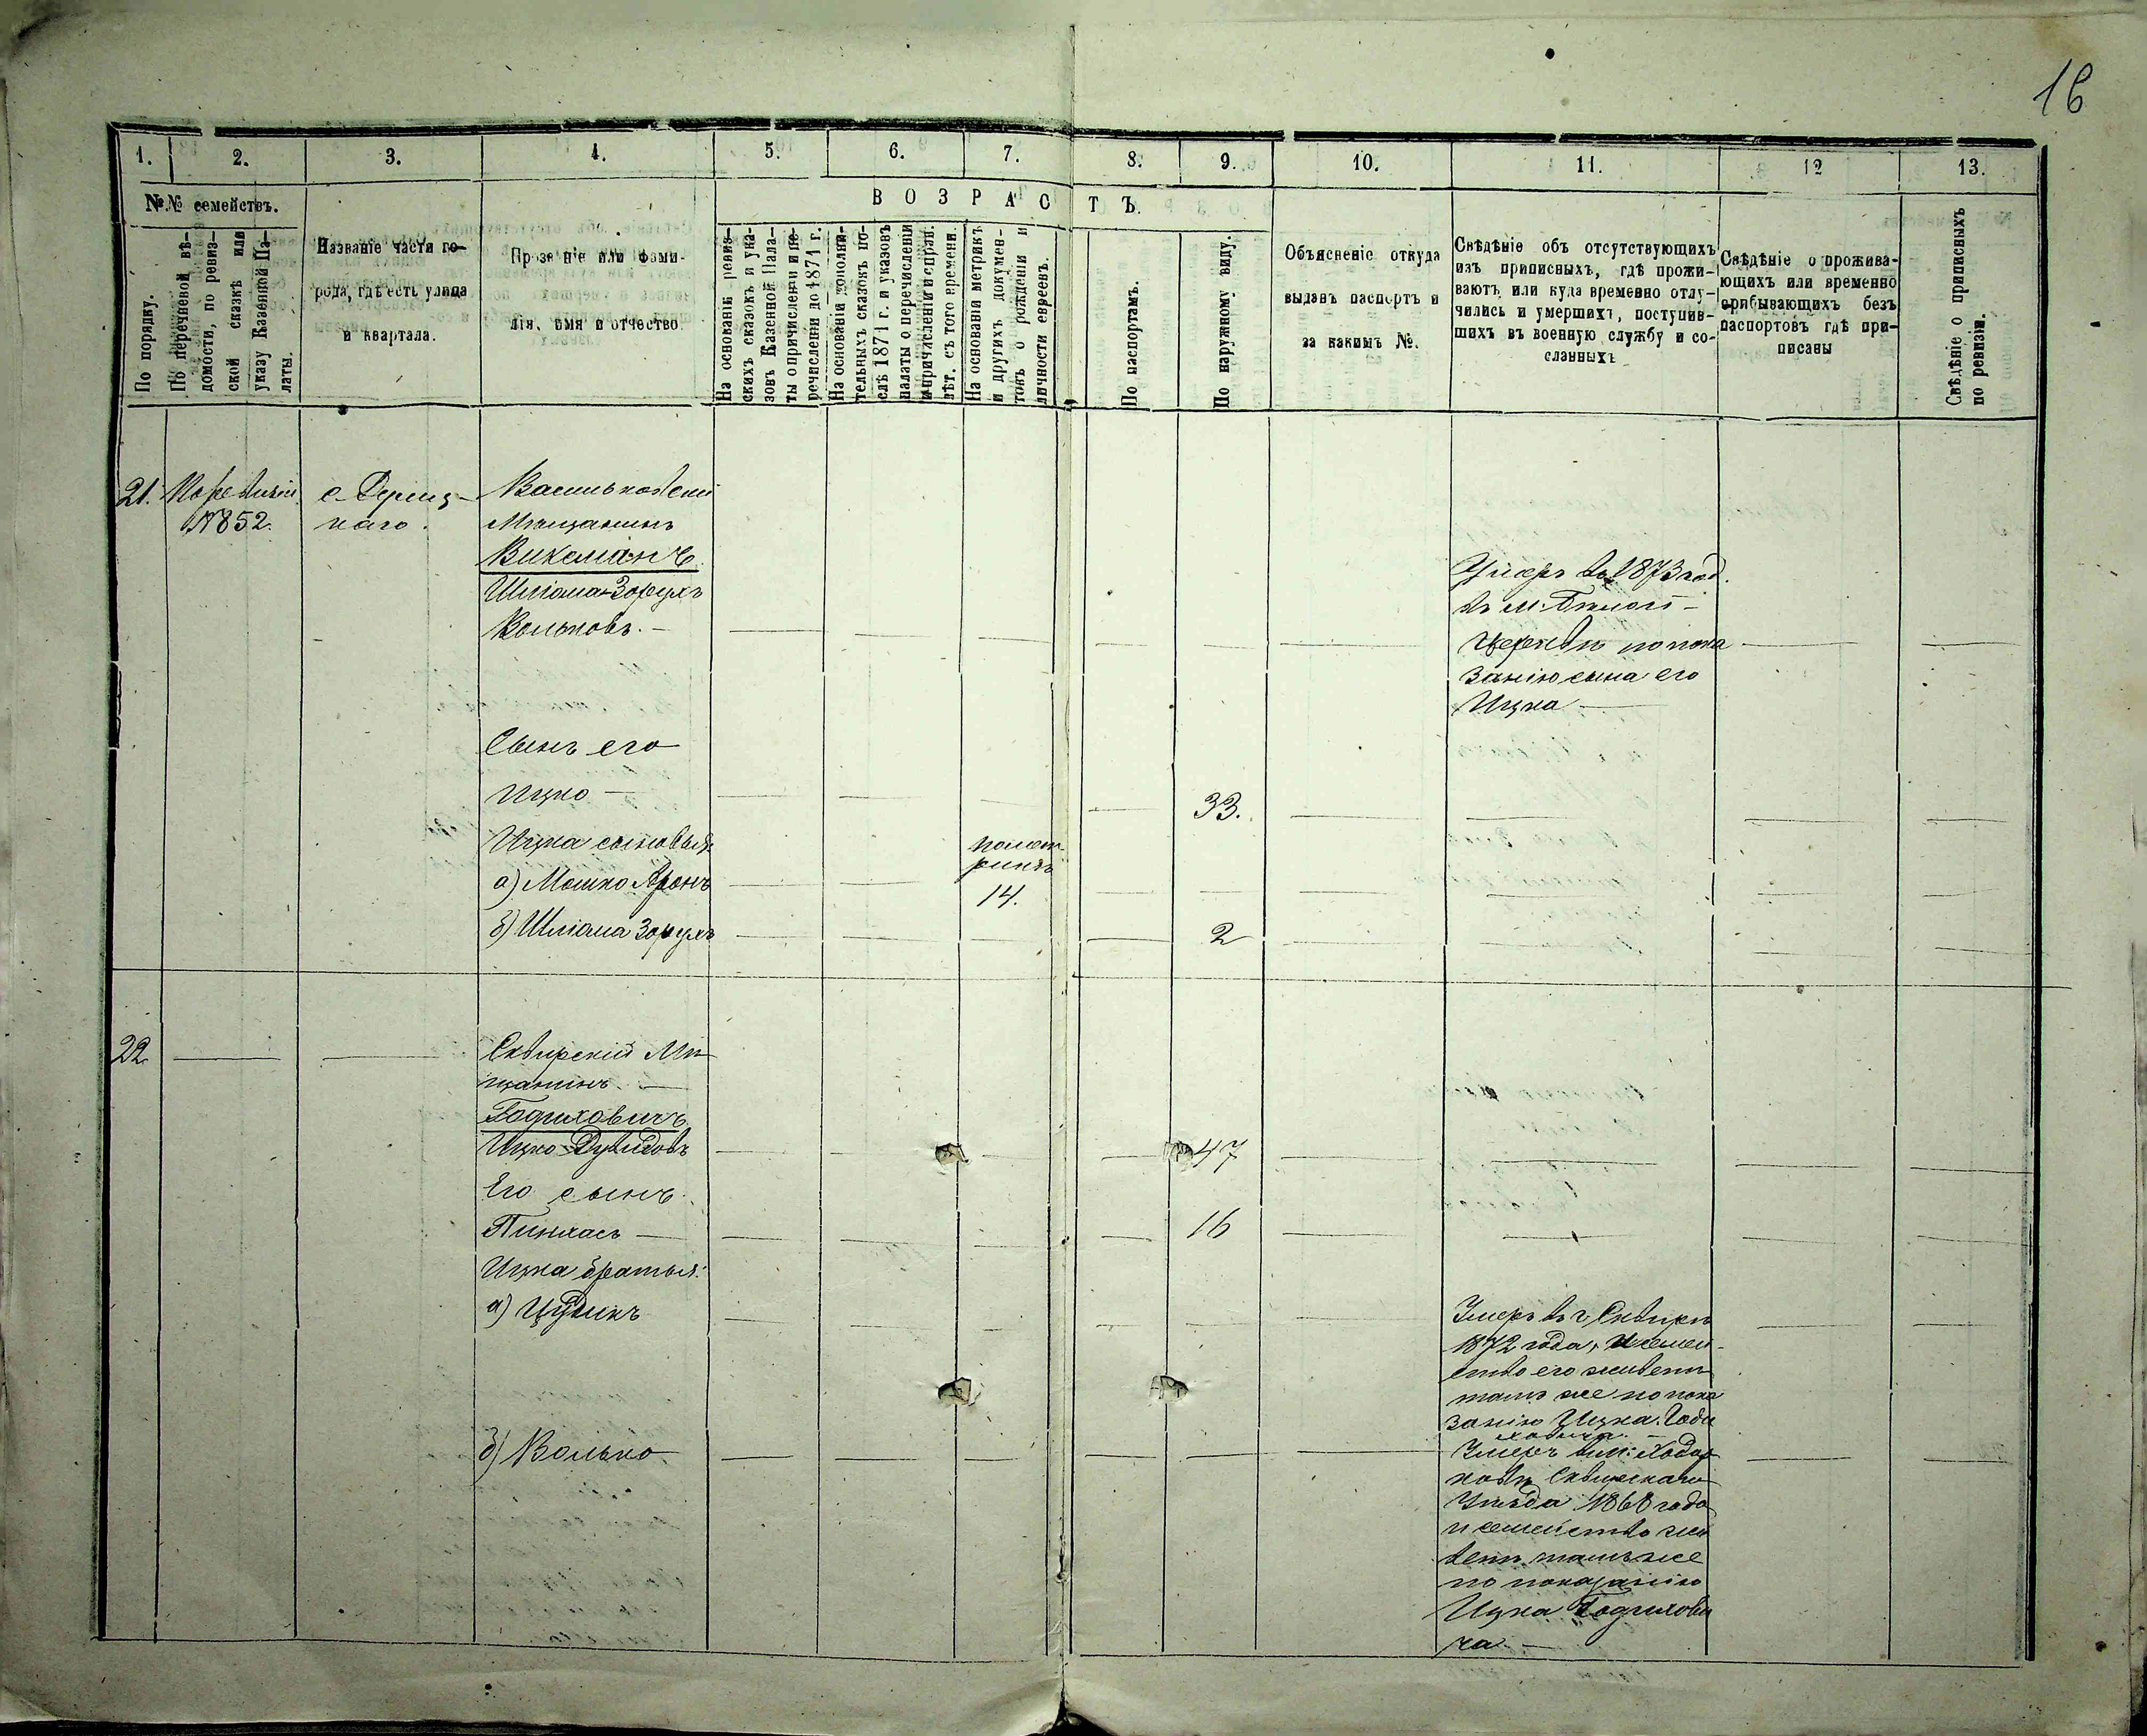 16
1. 2. 3. 4. 5. 6. 7. 8. 9. 10. 11. 12 13.
№№ семействъ.
В О З Р А С Т Ъ.
По порядку.
По перечневой вѣ-
домости, по ревиз-
ской сказкѣ или
указу Казенной Па-
латы.
Названіе части го-
рода, гдѣ есть улица
и квартала.
Прозваніе или фами-
лія, имя и отчество.
На основаніи ревиз-
скихъ сказокъ и ука-
зовъ Казенной Пала-
ты о причисленіи и пе-
речисленіи до 1871 г.
На основаніи дополни-
тельныхъ сказокъ по-
слѣ 1871 г. и указовъ
палаты о перечисленіи
и причисленіи
вѣт. съ того времени.
На основаніи метрикъ
и другихъ докумен-
товъ о рожденіи и
личности евреевъ.
По паспортамъ.
По наружному виду.
Объясненіе откуда
выданъ паспортъ и
за какимъ №.
Свѣдѣніе объ отсутствующихъ
изъ приписныхъ, гдѣ прожи-
ваютъ или куда временно отлу-
чились и умершихъ, поступив-
шихъ въ военную службу и со-
сланныхъ
Свѣдѣніе о прожива-
ющихъ или временно
прибывающихъ безъ
паспортовъ гдѣ при-
писаны
Свѣдѣніе о приписныхъ
по ревизіи.
21.
По ревизіи
№852.
каго.
Васильковскій
Мѣщанинъ
Виксманъ
Шліома-Зорухъ
Вольковъ. —
Умеръ въ 1873 год.
въ м. Бѣлой-
церквѣ по пока
занію сына его
Ицка —
Сынъ его
Ицко —
33.
Ицка сыновья
помет-
рикѣ
а) Мошко Аронъ
14.
б) Шліома Зорухъ
2
22.
Сквирскій Мѣ
щанинъ. —
Годзиховичъ
Ицко-Дувидовъ
47
Его сынъ.
Пинхасъ —
16
Ицка братья:
а) Цудикъ
Умеръ въ г. Сквирѣ
1872 года, и семей-
ство его живетъ
тамъ же по пока
занію Ицка Годзи
ховича. —
б) Волько
Умеръ въ м: Ходор
ковѣ Сквирскаго
Уѣзда 1868 года
и семейство жи
ветъ тамъ же
по показанію
Ицка Годзихови
ча. —